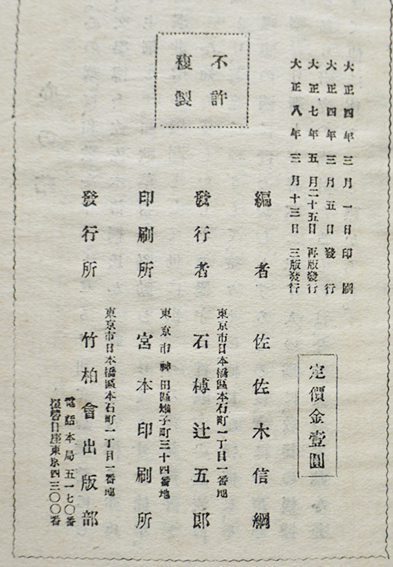 大正四年三月一日印刷
大正四年三月五日發行
大正七年五月二十五日再版發行
大正八年三月十三日三版發行
定價金壹圓
不許
複製
編者 佐佐木信綱
東京市日本橋區本石町一丁目一番地
發行者 石榑辻五郎
東京市神田區鍛子町三十四番地
印刷所 宮本印刷所
東京市日本橋區本石町一丁目一番地
發行所 竹柏會出版部
電話本局五一七〇番
振替口座東京四三〇〇番